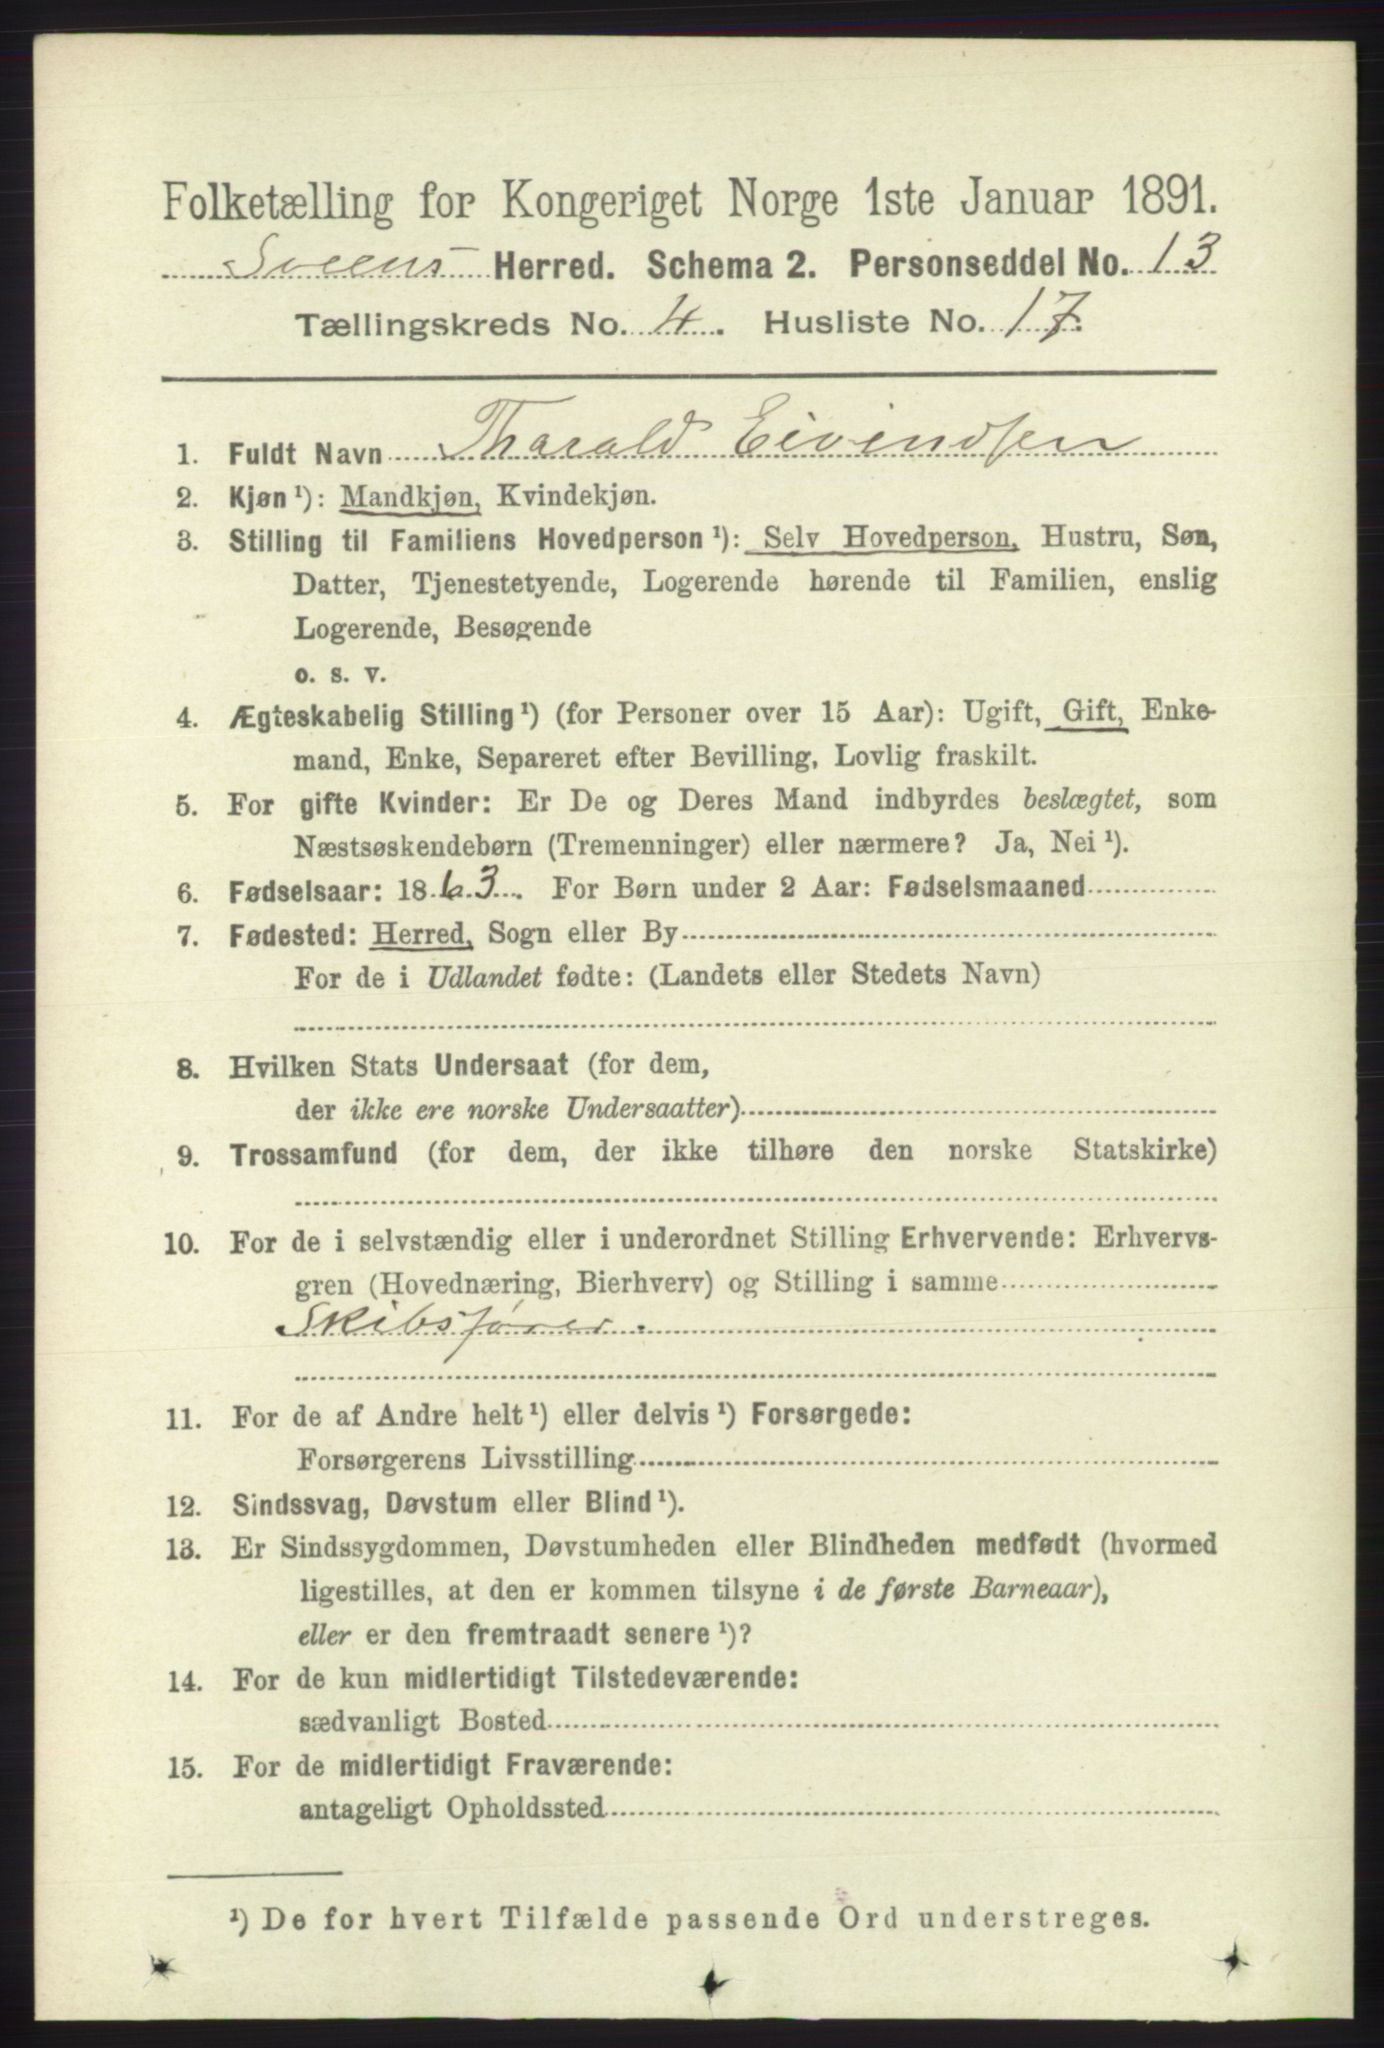 Folketælling for Kongeriget Norge 1ste Januar 1891.
Sveens Herred. Schema 2. Personseddel No. 13
Tællingskreds No. 4. Husliste No. 17.
1. Fuldt Navn Tharald Eivindsen
2. Kjøn¹): Mandkjøn, Kvindekjøn.
3. Stilling til Familiens Hovedperson¹): Selv Hovedperson, Hustru, Søn,
Datter, Tjenestetyende, Logerende hørende til Familien, enslig
Logerende, Besøgende
o. s. v.
4. Ægteskabelig Stilling¹) (for Personer over 15 Aar): Ugift, Gift, Enke-
mand, Enke, Separeret efter Bevilling, Lovlig fraskilt.
5. For gifte Kvinder: Er De og Deres Mand indbyrdes beslægtet, som
Næstsøskendebørn (Tremenninger) eller nærmere? Ja, Nei¹).
6. Fødselsaar: 1863. For Børn under 2 Aar: Fødselsmaaned
7. Fødested: Herred, Sogn eller By
For de i Udlandet fødte: (Landets eller Stedets Navn)
8. Hvilken Stats Undersaat (for dem,
der ikke ere norske Undersaatter)
9. Trossamfund (for dem, der ikke tilhøre den norske Statskirke)
10. For de i selvstændig eller i underordnet Stilling Erhvervende: Erhvervs-
gren (Hovednæring, Bierhverv) og Stilling i samme
Skibsfører.
11. For de af Andre helt¹) eller delvis¹) Forsørgede:
Forsørgerens Livsstilling
12. Sindssvag, Døvstum eller Blind¹).
13. Er Sindssygdommen, Døvstumheden eller Blindheden medfødt (hvormed
ligestilles, at den er kommen tilsyne i de første Barneaar),
eller er den fremtraadt senere¹)?
14. For de kun midlertidigt Tilstedeværende:
sædvanligt Bosted
15. For de midlertidigt Fraværende:
antageligt Opholdssted
¹) De for hvert Tilfælde passende Ord understreges.